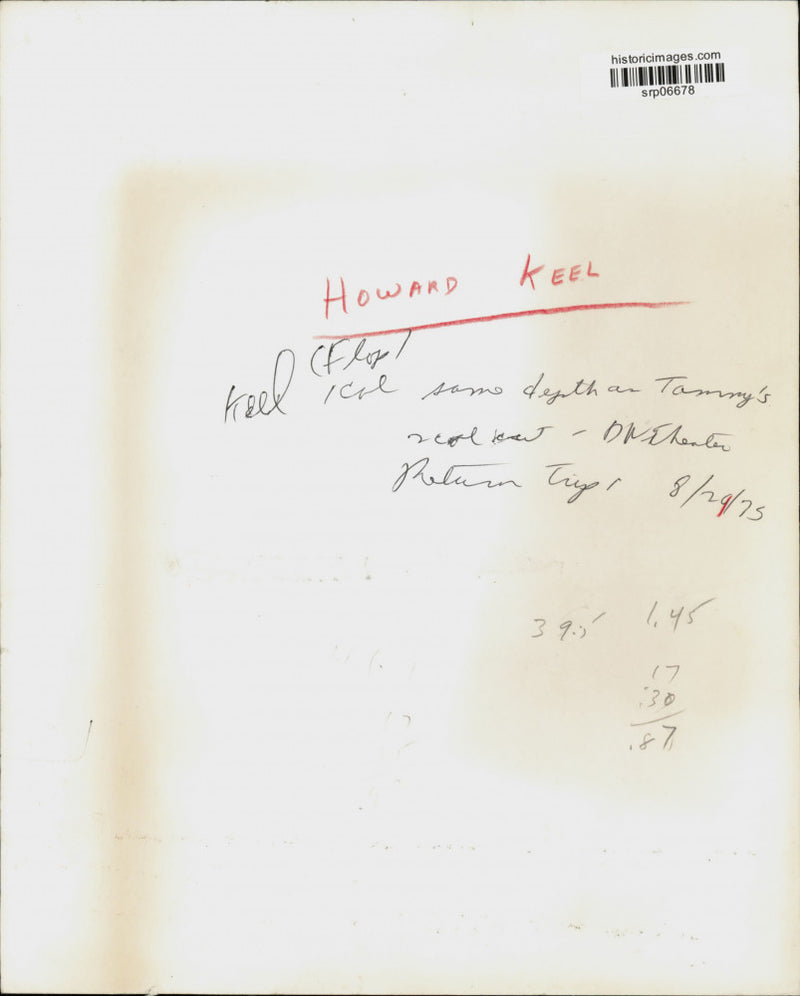 historicimages.com
srp06678
HOWARD KEEL
(Flop)
Keel 1 col same depth as Tammy's
2 col cut - Theater
Return Trip 8/29/75
39.5 1.45
17
.30
.87